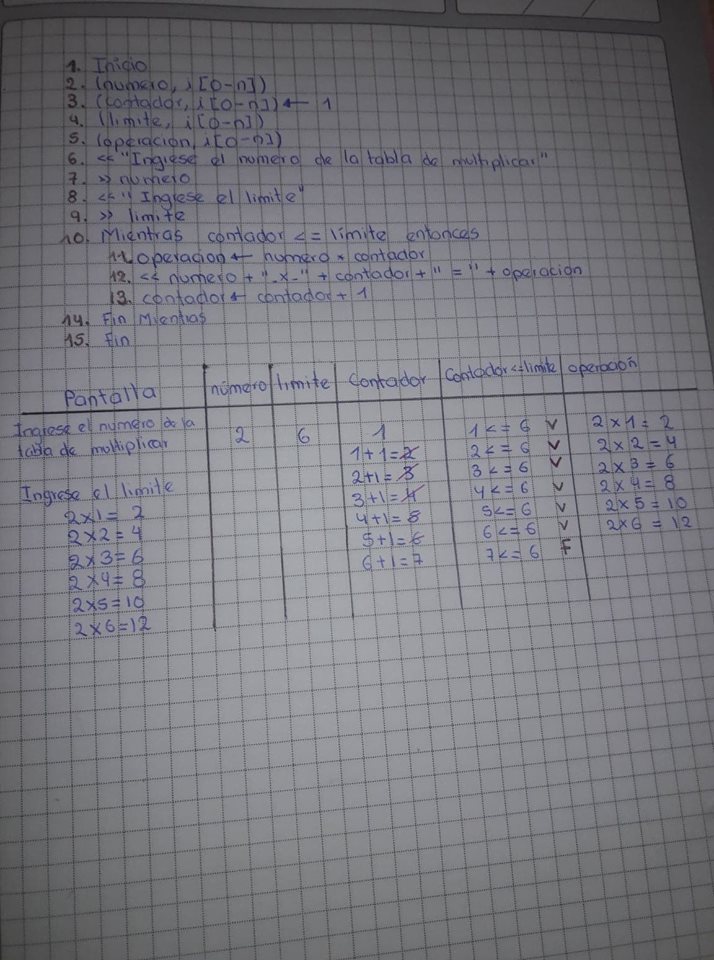 1. Inicio
2. (numero, i [0-n])
3. (contador, i [0-n]) ← 1
4. (limite, i [0-n])
5. (operacion, i [0-n])
6. << "Ingrese el numero de la tabla de multiplicar"
7. >> numero
8. << "Ingrese el limite"
9. >> limite
10. Mientras contador <= límite entonces
11. operacion ← numero * contador
12. << numero + "-x-" + contador + " = " + operacion
13. contador ← contador + 1
14. Fin Mientras
15. Fin
Pantalla número limite Contador Contador <= limite operación
Ingrese el numero de la 2 6 1 1 <= 6 V 2 x 1 = 2
tabla de multiplicar 1 + 1 = 2 2 <= 6 V 2 x 2 = 4
2 + 1 = 3 3 <= 6 V 2 x 3 = 6
Ingrese el limite 3 + 1 = 4 4 <= 6 V 2 x 4 = 8
2 x 1 = 2 4 + 1 = 5 5 <= 6 V 2 x 5 = 10
2 x 2 = 4 5 + 1 = 6 6 <= 6 V 2 x 6 = 12
2 x 3 = 6 6 + 1 = 7 7 <= 6 F
2 x 4 = 8
2 x 5 = 10
2 x 6 = 12